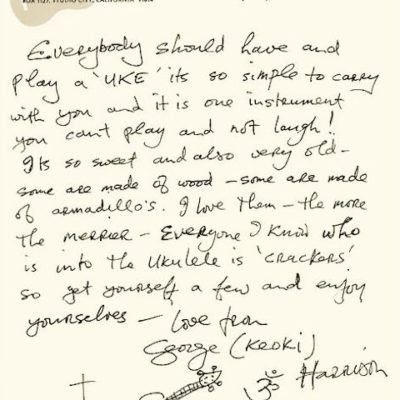 BOX 1127, STUDIO CITY, CALIFORNIA 91614
Everybody should have and
play a 'UKE' its so simple to carry
with you and it is one instrument
you cant play and not laugh!
Its so sweet and also very old-
some are made of wood - some are made
of armadillo's. I love them - the more
the merrier - Everyone I know who
is into the ukulele is 'crackers'
so get yourself a few and enjoy
yourselves - Love from
George (Keoki)
ॐ Harrison